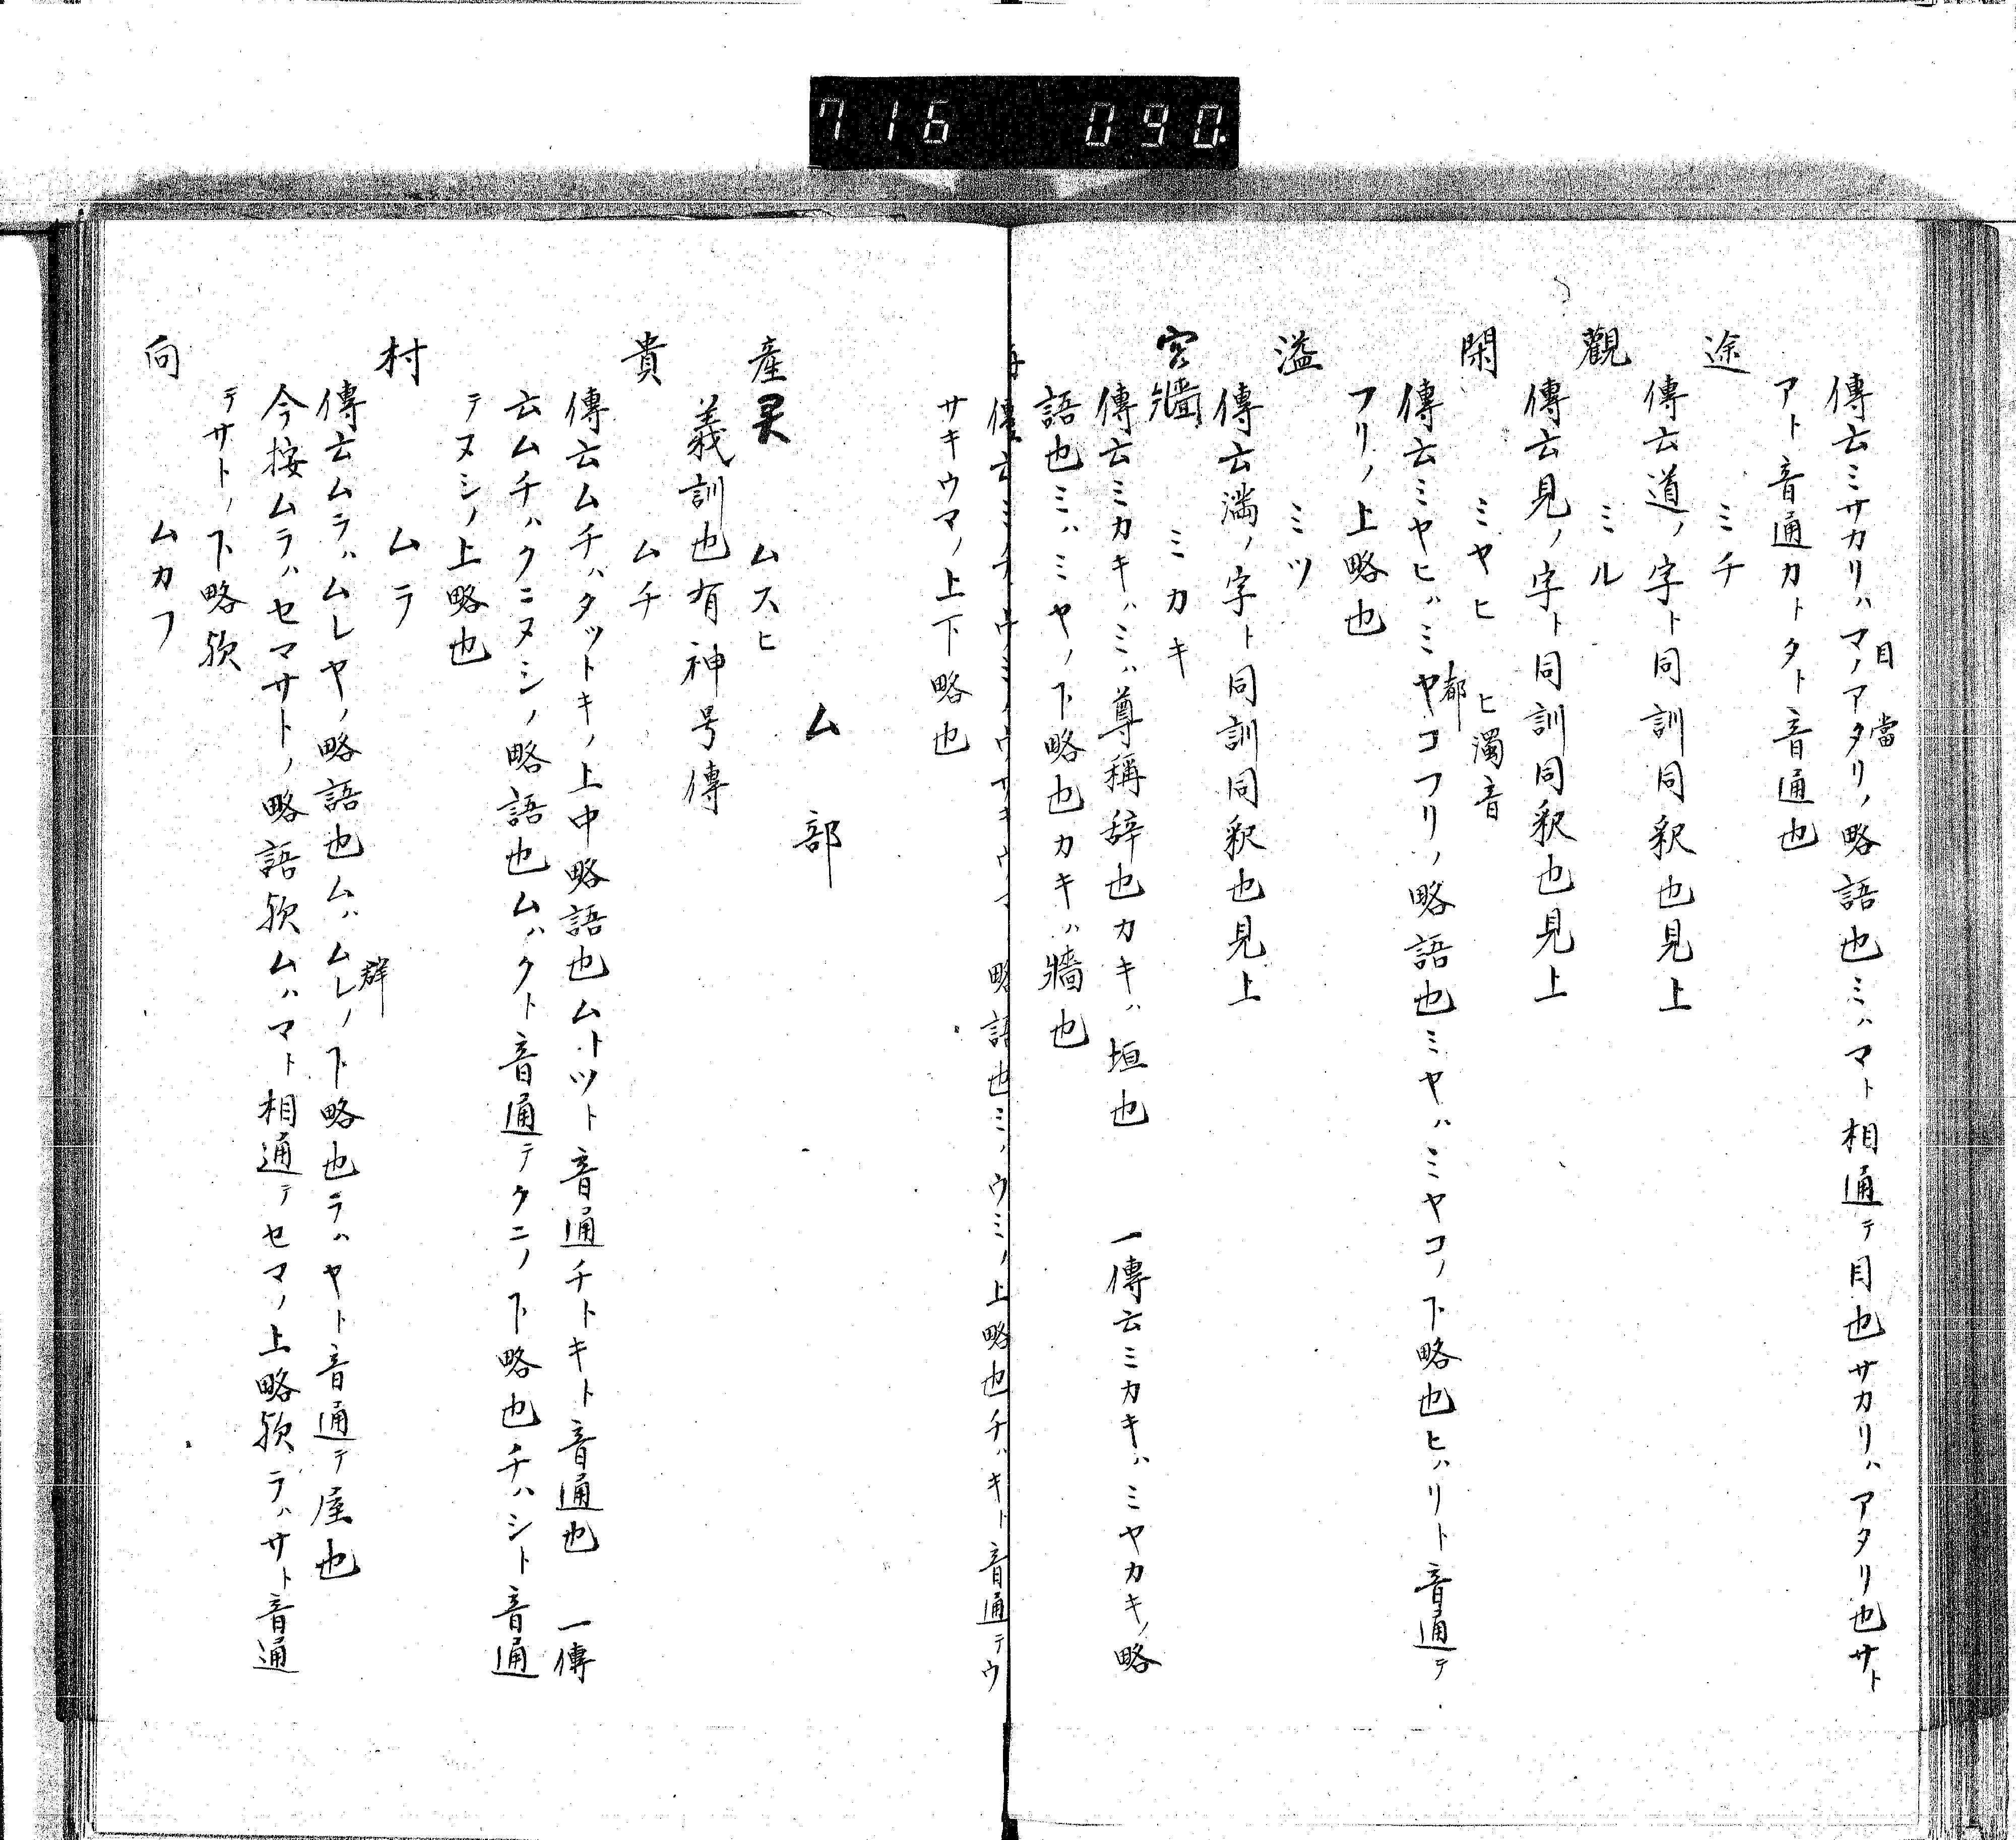 716 090.
傳云ミサカリハマノアタリノ略語也ミハマト相通テ目也サカリハアタリ也サト
目當
アト音通カトタト音通也
途 ミチ
傳云道ノ字ト同訓同釈也見上
觀 ミル
傳云見ノ字ト同訓同釈也見上
閑 ミヤヒ ヒ濁音
傳云ミヤヒハミヤコフリノ略語也ミヤハミヤコノ下略也ヒハリト音通テ
都
フリノ上略也
溢 ミツ
傳云満ノ字ト同訓同釈也見上
宮牆 ミカキ
傳云ミカキハミハ尊稱辞也カキハ垣也 一傳云ミカキハミヤカキノ略
語也ミハミヤノ下略也カキハ牆也
傳云ミチ ウミノウサキウマ 略語也ミノウミノ上略也チハキト音通テウ
サキウマノ上下略也
ム部
産灵 ムスヒ
義訓也有神号傳
貴 ムチ
傳云ムチハタットキノ上中略語也ムトツト音通チトキト音通也 一傳
云ムチハクニヌシノ略語也ムハクト音通テクニノ下略也チハシト音通
テヌシノ上略也
村 ムラ
傳云ムラハムレヤノ略語也ムハムレノ下略也ラハヤト音通テ屋也
群
今按ムラハセマサトノ略語欤ムハマト相通テセマノ上略欤ラハサト音通
テサトノ下略欤
向 ムカフ